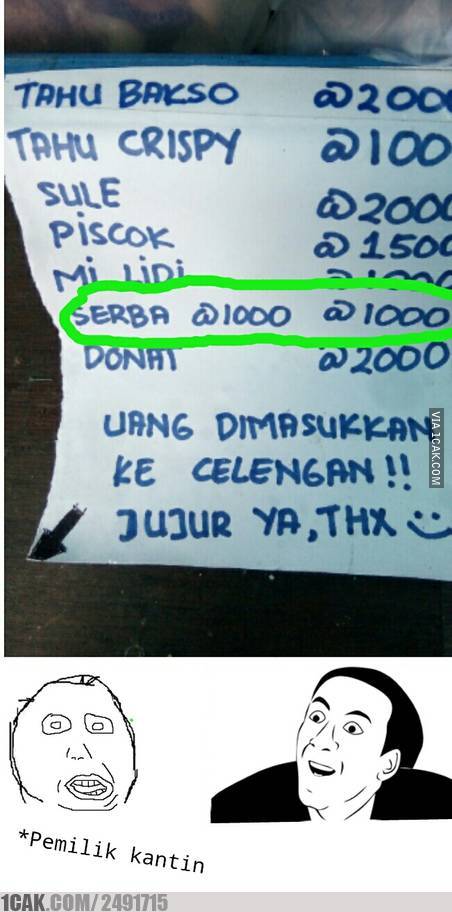 TAHU BAKSO @2000
TAHU CRISPY @100
SULE @2000
PISCOK @1500
Mi LiDi @1000
SERBA @1000 @1000
DONAT @2000
UANG DIMASUKKAN
KE CELENGAN!!
JUJUR YA, THX
VIA 1CAK.COM
*Pemilik kantin
1CAK.COM/2491715